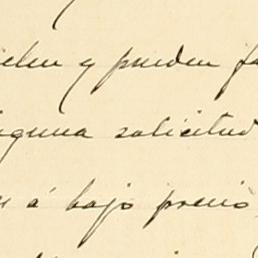 elen y pueden fa
iguna solicitud
n á bajo precio